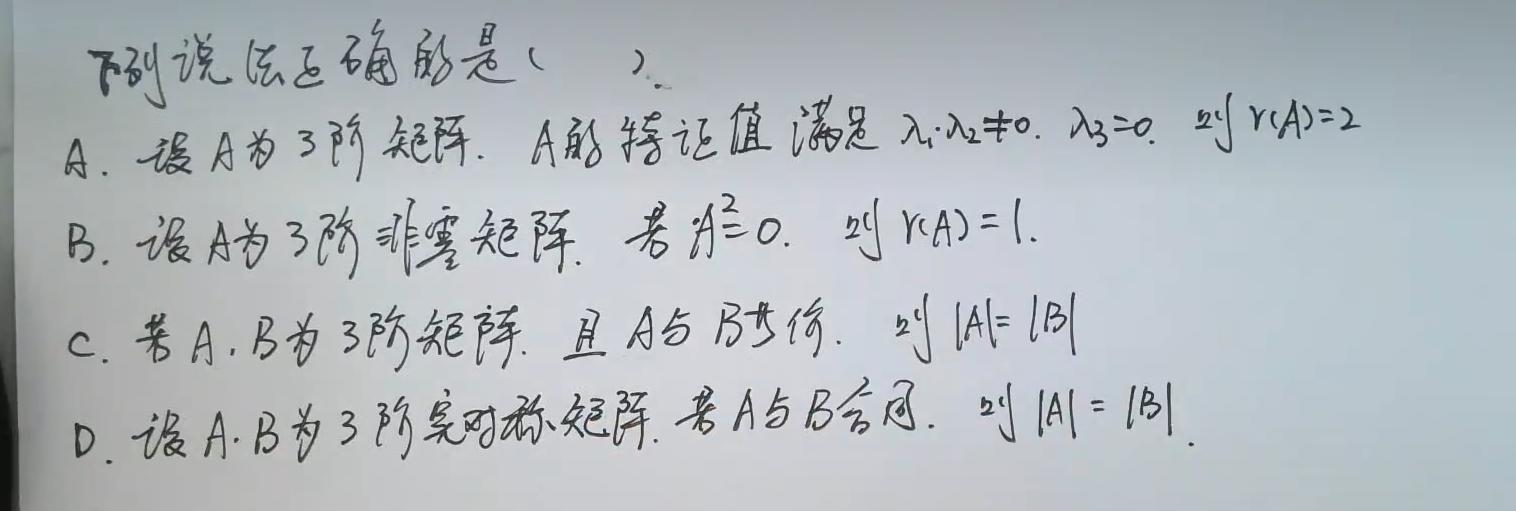 下列说法正确的是( ).
A. 设A为3阶矩阵. A的特征值满足 λ₁·λ₂≠0. λ₃=0. 则 r(A)=2
B. 设A为3阶非零矩阵. 若 A²=0. 则 r(A)=1.
C. 若A.B为3阶矩阵. 且A与B等价. 则 |A|=|B|
D. 设A.B为3阶实对称矩阵. 若A与B合同. 则 |A|=|B|.